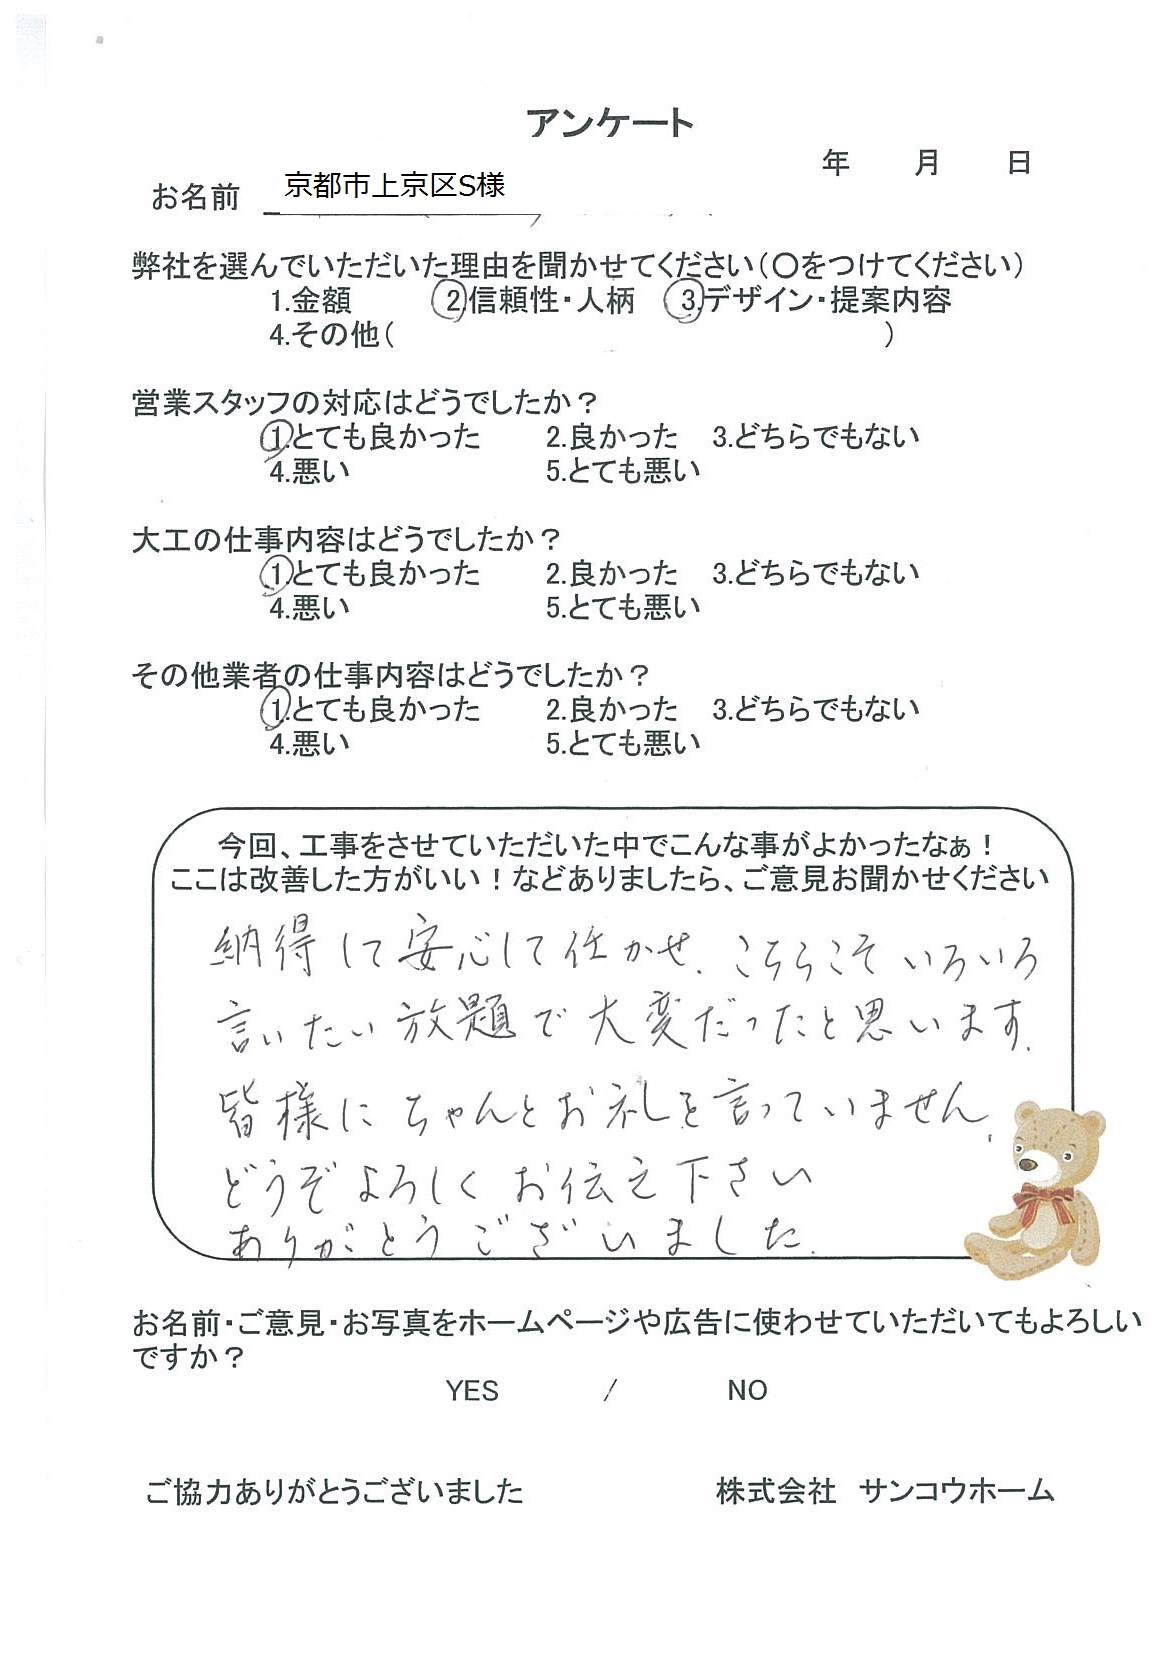 アンケート
年 月 日
お名前 京都市上京区S様
弊社を選んでいただいた理由を聞かせてください(〇をつけてください)
1.金額 2.信頼性・人柄 3.デザイン・提案内容
4.その他( )
営業スタッフの対応はどうでしたか？
1.とても良かった 2.良かった 3.どちらでもない
4.悪い 5.とても悪い
大工の仕事内容はどうでしたか？
1.とても良かった 2.良かった 3.どちらでもない
4.悪い 5.とても悪い
その他業者の仕事内容はどうでしたか？
1.とても良かった 2.良かった 3.どちらでもない
4.悪い 5.とても悪い
今回、工事をさせていただいた中でこんな事がよかったなぁ！
ここは改善した方がいい！などありましたら、ご意見お聞かせください
納得して安心して任かせ、こちらこそいろいろ
言いたい放題で大変だったと思います。
皆様にちゃんとお礼を言っていません。
どうぞよろしくお伝え下さい
ありがとうございました。
お名前・ご意見・お写真をホームページや広告に使わせていただいてもよろしい
ですか？
YES / NO
ご協力ありがとうございました 株式会社 サンコウホーム